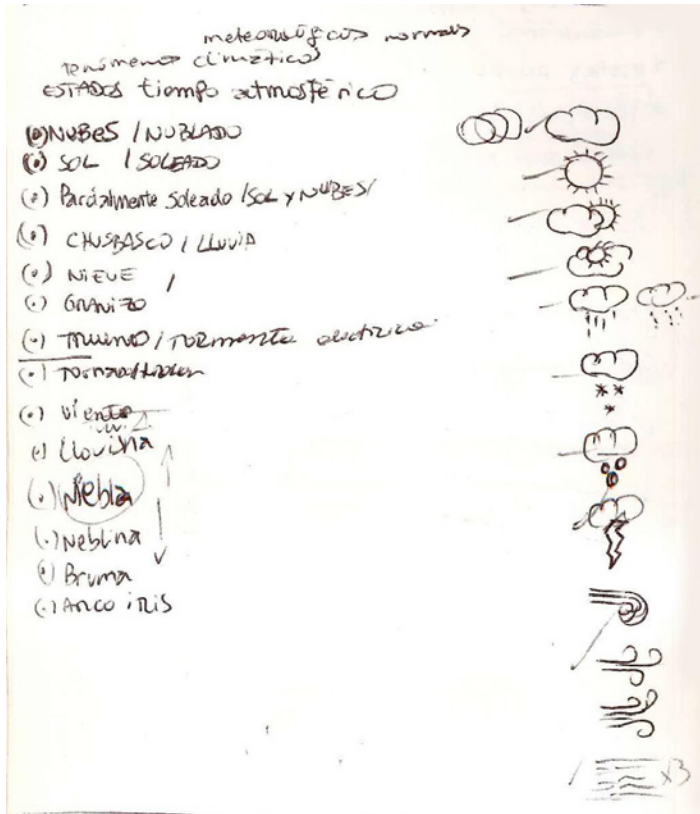 meteorológicos normales
fenómenos climáticos
ESTADOS tiempo atmosférico
(•) NUBES / NUBLADO
(•) SOL / SOLEADO
(•) Parcialmente soleado / SOL Y NUBES /
(•) CHUSBASCO / LLUVIA
(•) NIEVE /
(•) GRANIZO
(•) TRUENO / TORMENTA electrica
(•) TORNADO /
(•) viento
(•) Llovizna
(•) Niebla
(•) Neblina
(•) Bruma
(•) ARCO IRIS
x3